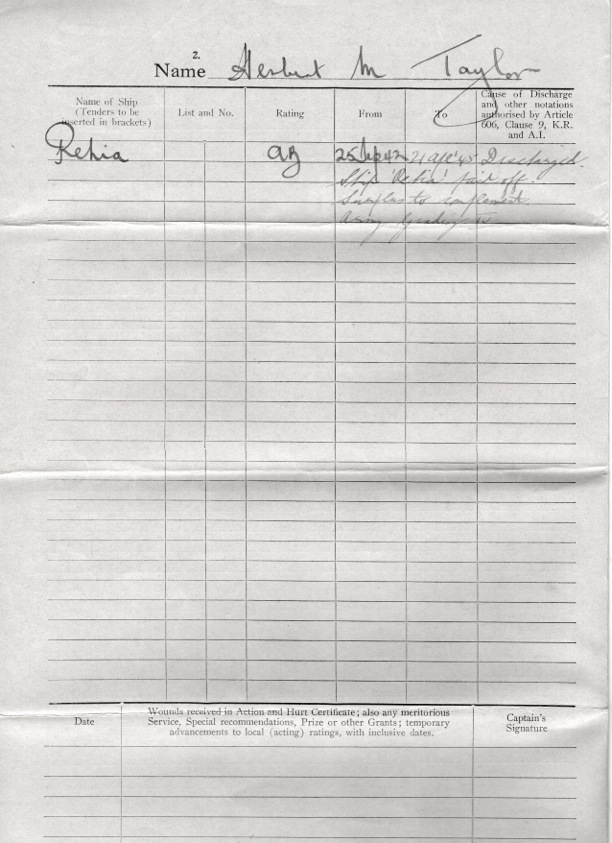 2.
Name Herbert M Taylor
Name of Ship
(Tenders to be
inserted in brackets)
List and No.
Rating
From
To
Cause of Discharge
and other notations
authorised by Article
606, Clause 9, K.R.
and A.I.
Rehia AB 25 42 21 '45 Discharged.
Ship 'Rehia' paid off.
Surplus to complement.
Army
Date
Wounds received in Action and Hurt Certificate; also any meritorious
Service, Special recommendations, Prize or other Grants; temporary
advancements to local (acting) ratings, with inclusive dates.
Captain's
Signature